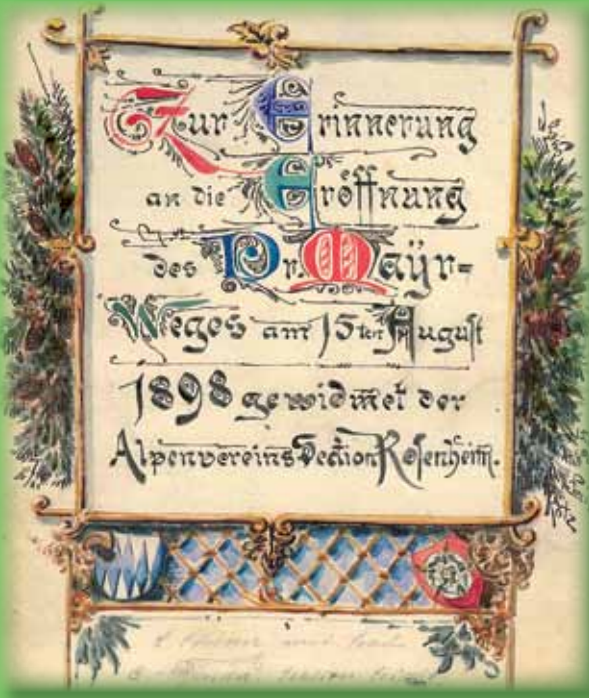 Zur Erinnerung
an die Eröffnung
des Dr. Mayr-
Weges am 15ten August
1898 gewidmet der
Alpenvereins Section Rosenheim.